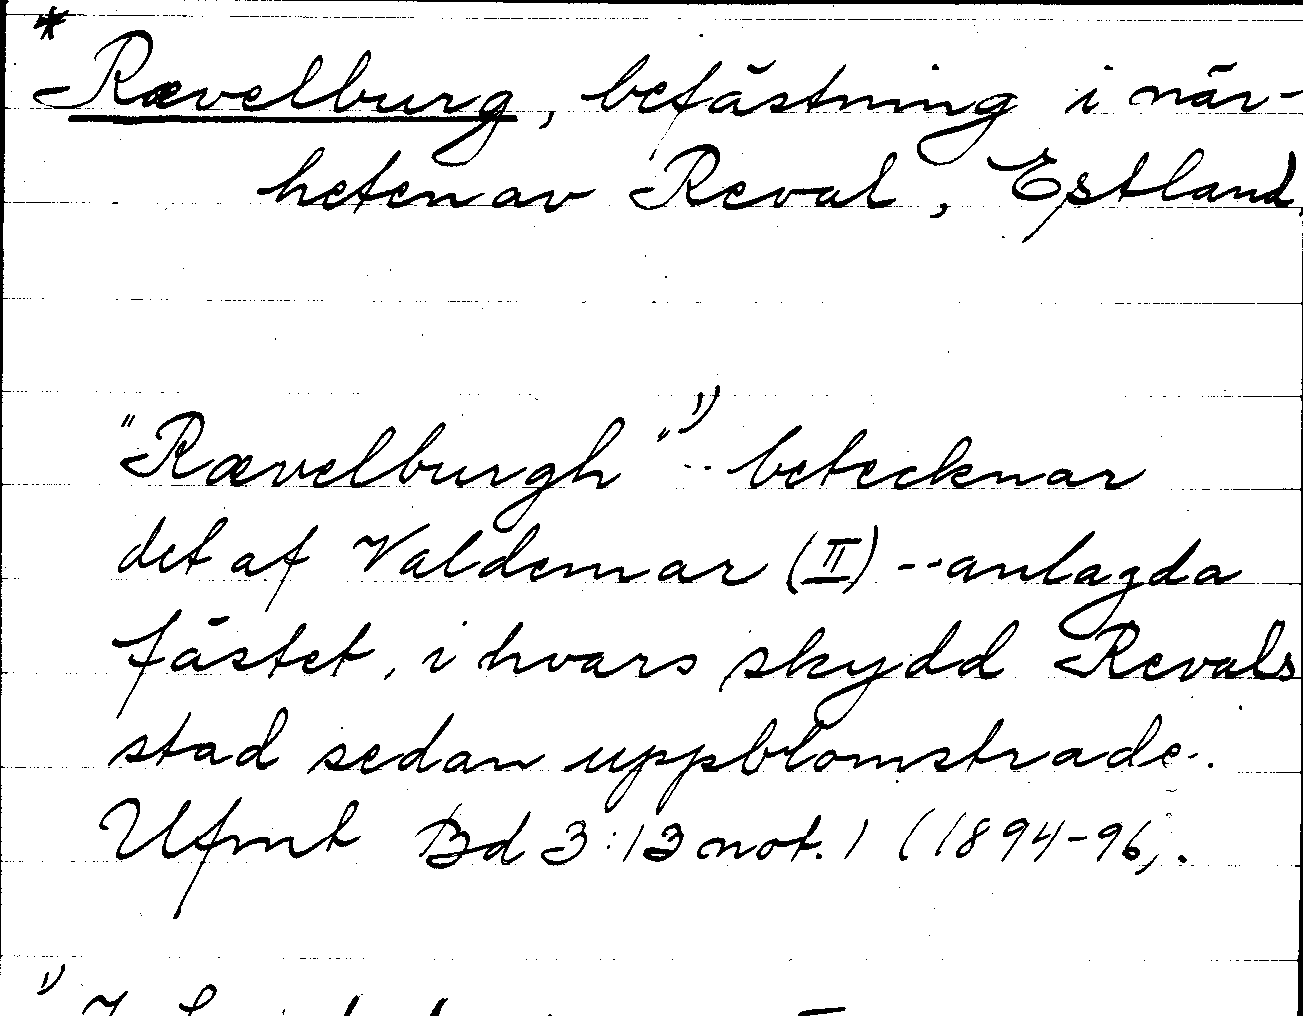 *
Rævelburg, befästning i när-
heten av Reval, Estland.
"Rævelburgh" 1) -- betecknar
det af Valdemar (II) -- anlagda
fästet, i hvars skydd Revals
stad sedan uppblomstrade.
Ufmt Bd 3:13 not. 1 (1894-96).
1)